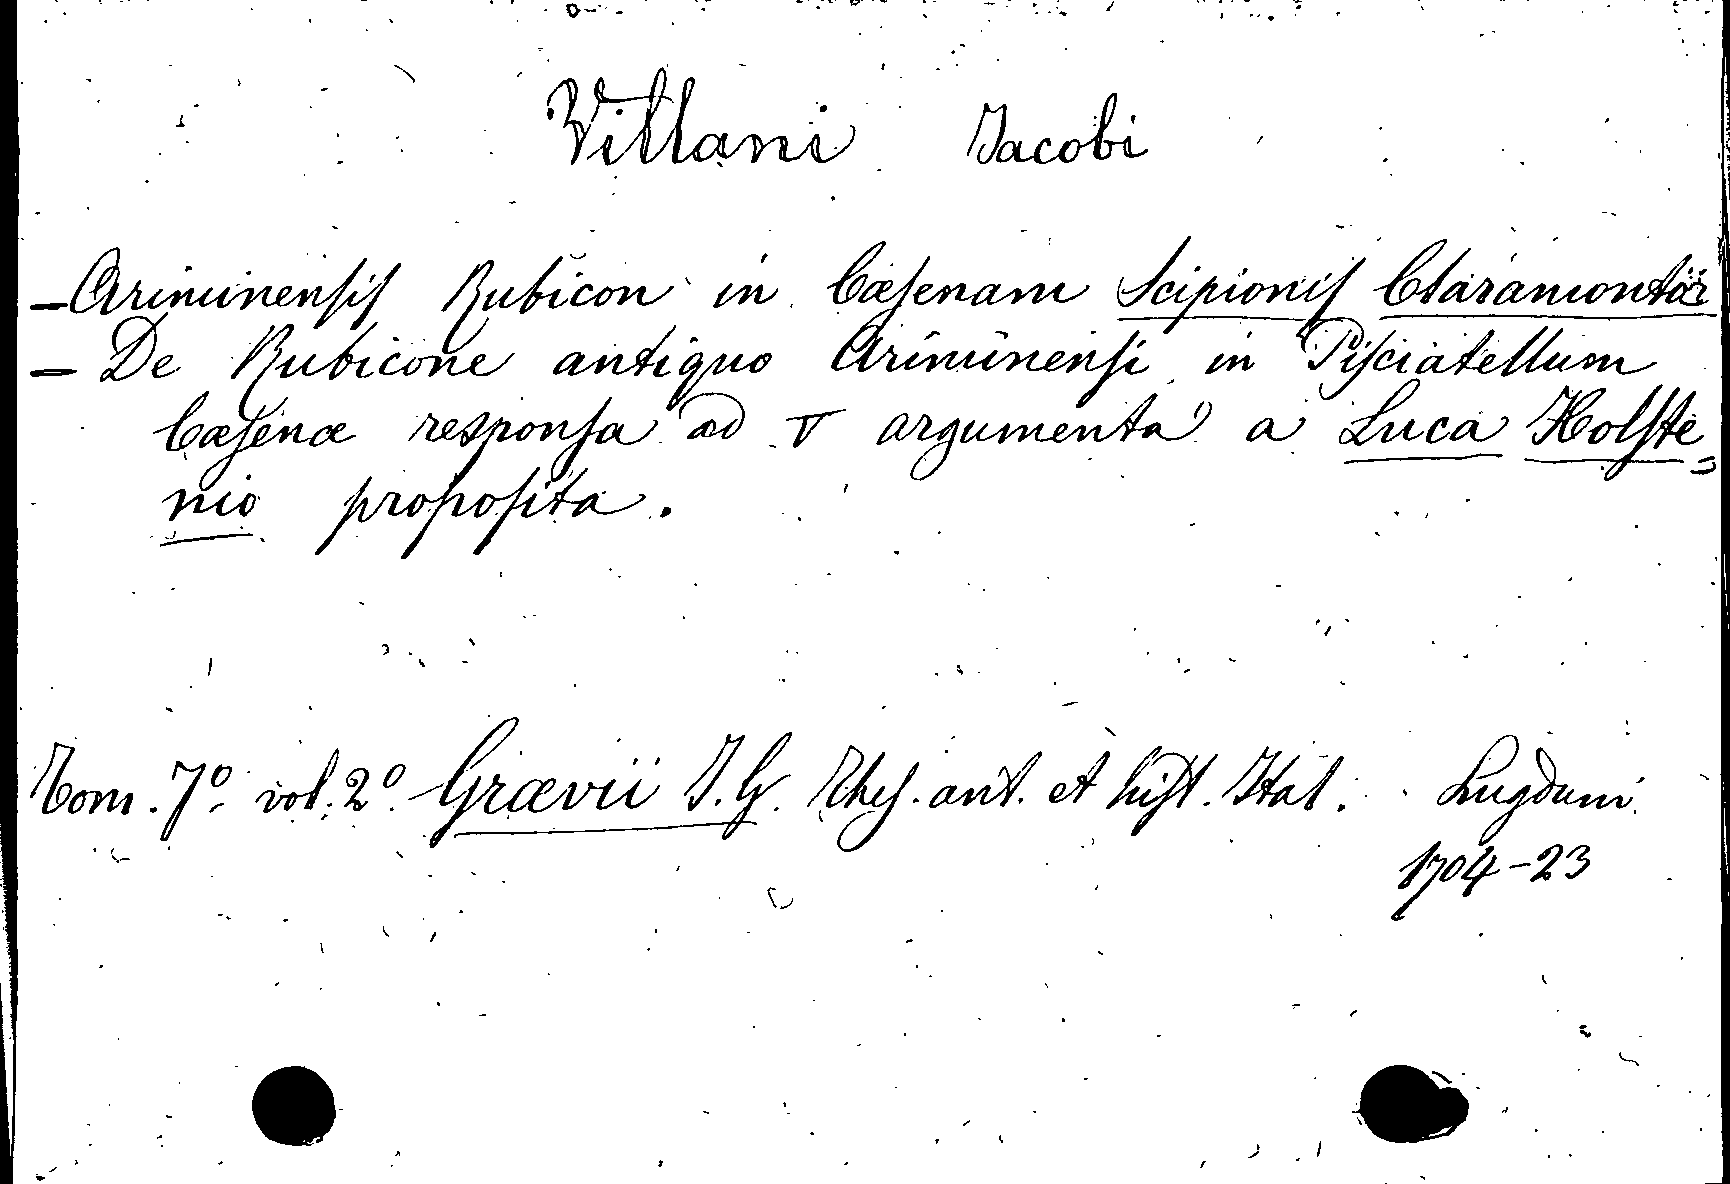 Villani Jacobi
- Ariminensis Rubicon in Cæsenam Scipionis Claramontii
- De Rubicone antiquo Ariminensi in Pisciatellum
Cæsenæ responsa ad V argumenta a Luca Holste=
nio proposita.
Tom. 7º. vol. 2º. Grævii J. G. Thes. ant. et hist. Ital. Lugduni
1704-23